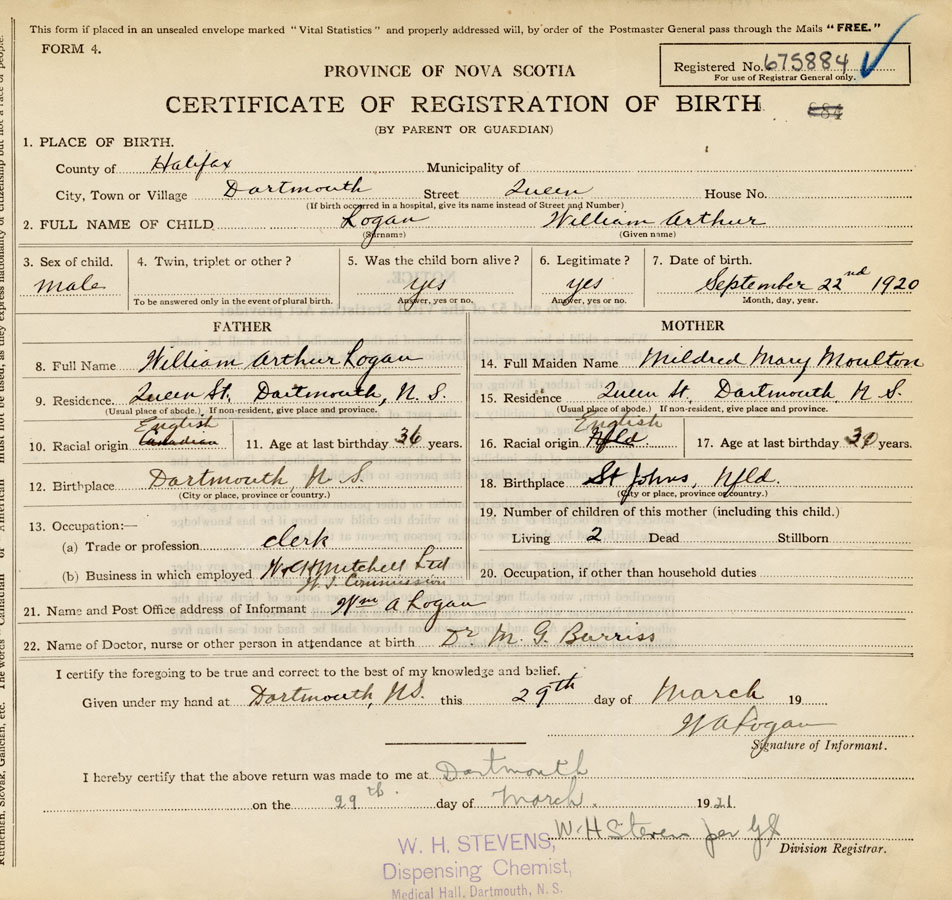 This form if placed in an unsealed envelope marked "Vital Statistics" and properly addressed will, by order of the Postmaster General pass through the Mails "FREE."
FORM 4.
Registered No. 675884
For use of Registrar General only.
PROVINCE OF NOVA SCOTIA
CERTIFICATE OF REGISTRATION OF BIRTH
884
(BY PARENT OR GUARDIAN)
1. PLACE OF BIRTH.
County of Halifax Municipality of
City, Town or Village Dartmouth Street Queen House No.
(If birth occurred in a hospital, give its name instead of Street and Number)
2. FULL NAME OF CHILD Logan William Arthur
(Surname) (Given name)
3. Sex of child. 4. Twin, triplet or other? 5. Was the child born alive? 6. Legitimate? 7. Date of birth.
male yes yes September 22nd 1920
To be answered only in the event of plural birth. Answer, yes or no. Answer, yes or no. Month, day, year.
FATHER MOTHER
8. Full Name William Arthur Logan 14. Full Maiden Name Mildred Mary Moulton
9. Residence Queen St. Dartmouth, N. S. 15. Residence Queen St. Dartmouth N S.
(Usual place of abode.) If non-resident, give place and province. (Usual place of abode.) If non-resident, give place and province.
English English
10. Racial origin Canadian 11. Age at last birthday 36 years. 16. Racial origin Nfld 17. Age at last birthday 30 years.
12. Birthplace Dartmouth, N. S. 18. Birthplace St Johns, Nfld.
(City or place, province or country.) (City or place, province or country.)
13. Occupation:— 19. Number of children of this mother (including this child.)
(a) Trade or profession clerk Living 2 Dead Stillborn
(b) Business in which employed Mitchell Ltd 20. Occupation, if other than household duties
W. I. Commission
21. Name and Post Office address of Informant Wm A Logan
22. Name of Doctor, nurse or other person in attendance at birth Dr M. G. Burriss
I certify the foregoing to be true and correct to the best of my knowledge and belief.
Given under my hand at Dartmouth, N.S. this 29th day of March 19
W A Logan
Signature of Informant.
I hereby certify that the above return was made to me at Dartmouth
on the 29th day of March 1921.
W. H Stevens per
Division Registrar.
W. H. STEVENS,
Dispensing Chemist,
Medical Hall, Dartmouth, N. S.